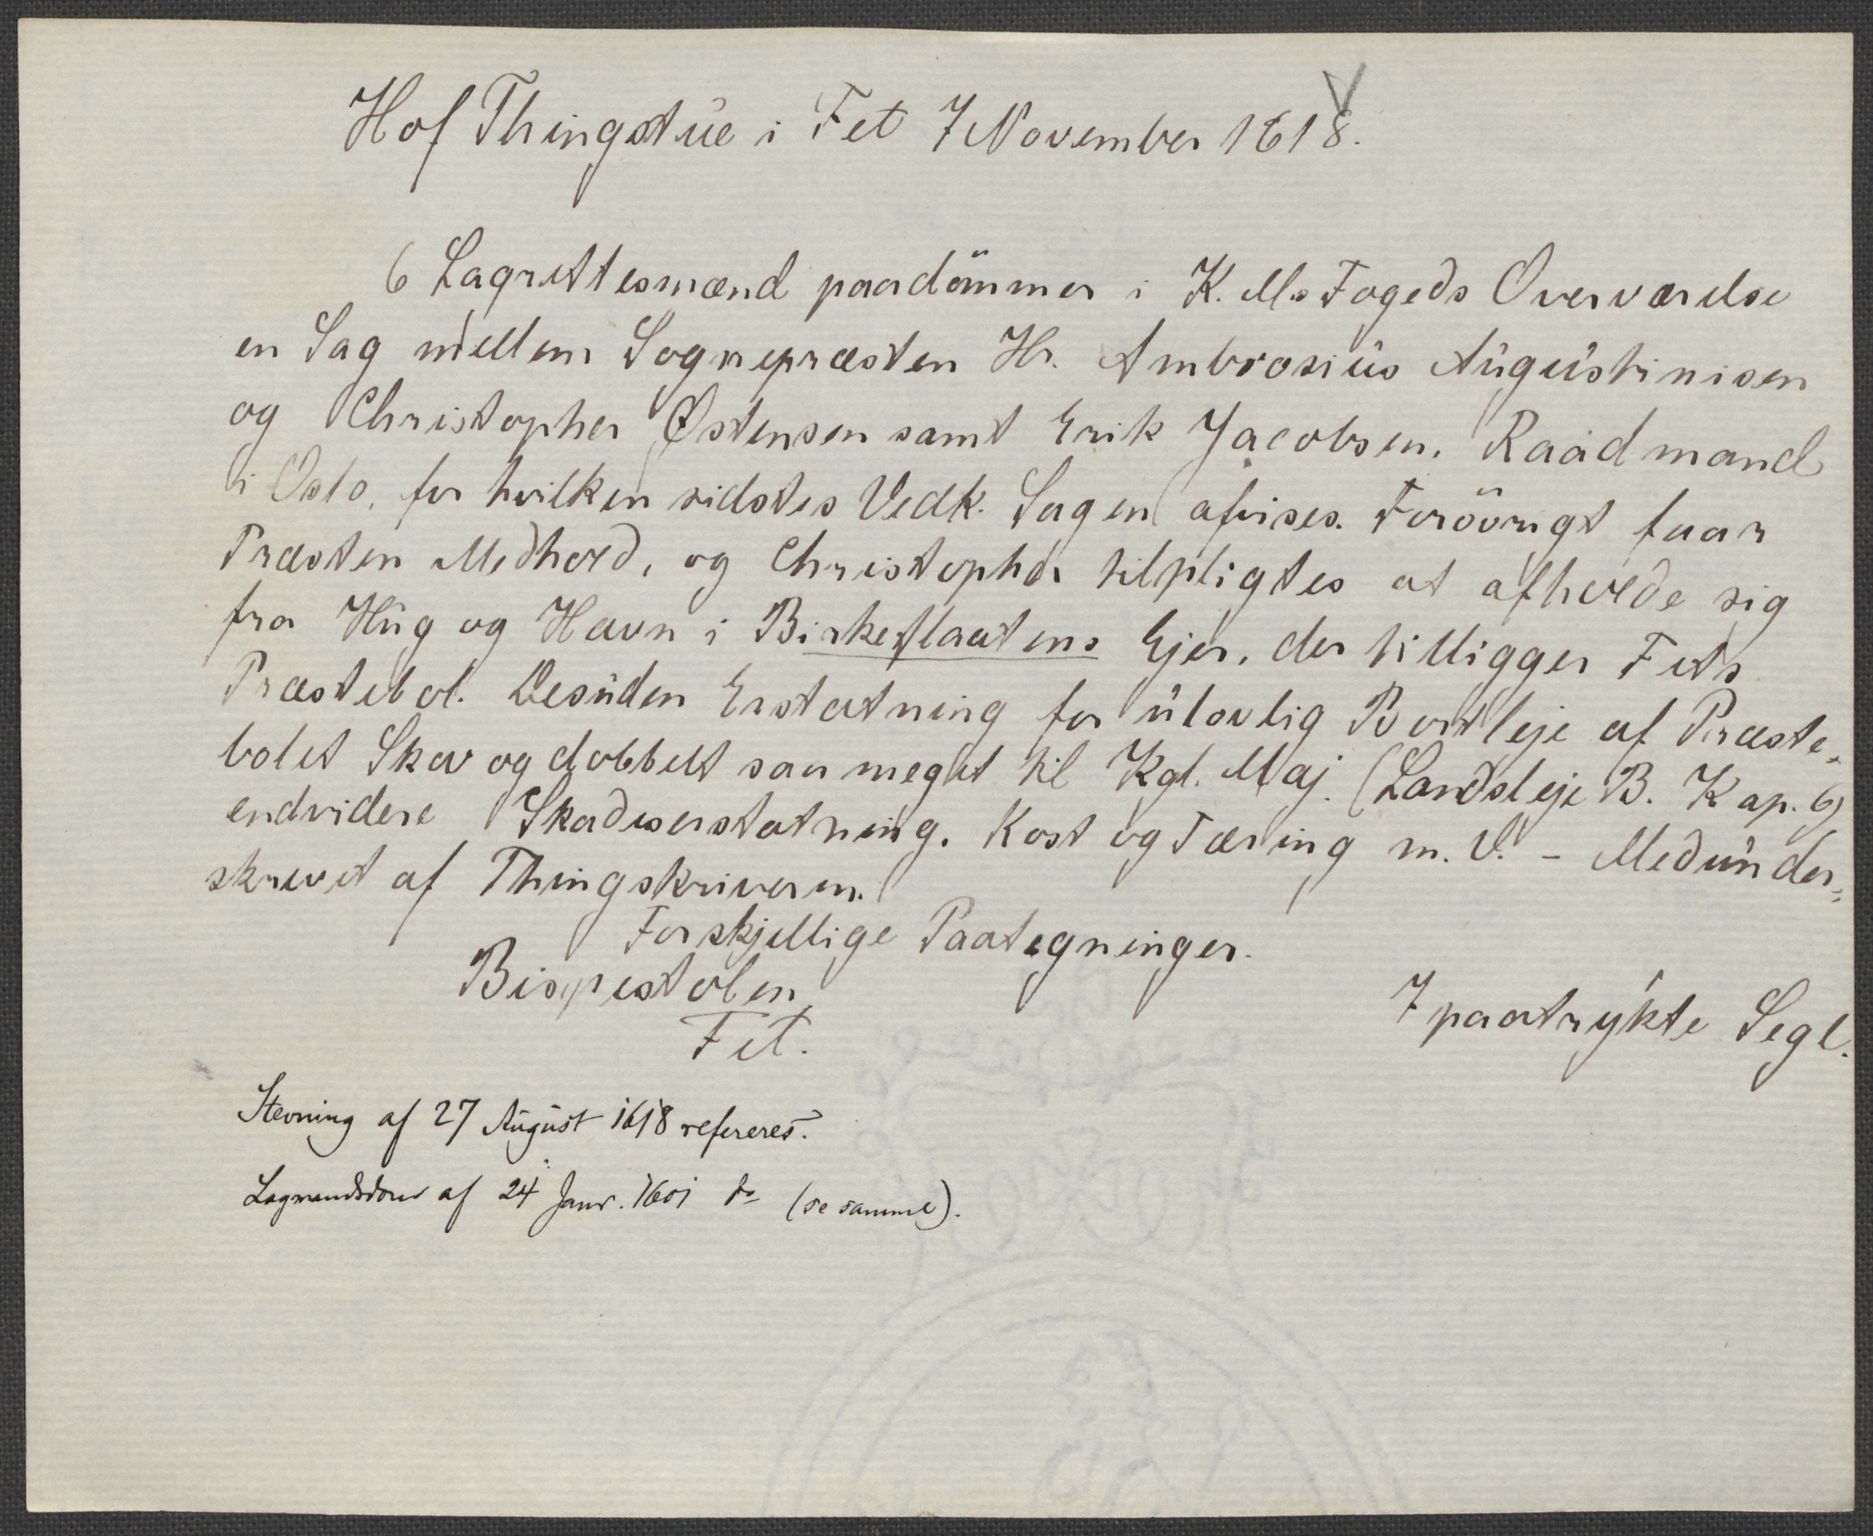 Hof Thingstue i Fet 7 November 1618.
6 Lagrettesmænd paadömmer i K. Ms Fogeds Overværelse
en Sag mellem Sognepræsten Hr. Ambrosius Augustinisen
og Christopher Østensen samt Erik Jacobsen, Raadmand
i Oslo, for hvilken sidstes Vedk. Sagen afvises. Foröovrigt faar
Præsten Medhold, og Christopher tilpligtes at afholde sig
fra Hug og Havn i Birkeflaatens Ejer, der tilligger Fets
Præstebol. Desuden Erstatning for ulovlig Bortleje af Præste-
bolet Skov og dobbelt saa meget til Kgl. Maj. (Landsleje B. Kap. 6)
endvidere Skadeserstatning, Kost og Tæring m. V. - Medunder-
skrevet af Thingskriveren.
Forskjellige Paategninger.
Bispestolen
Fet.
7 paatrykte Segl.
Stevning af 27 August 1618 refereres.
Lagmandsdom af 24 Janr. 1601 do (se samme).